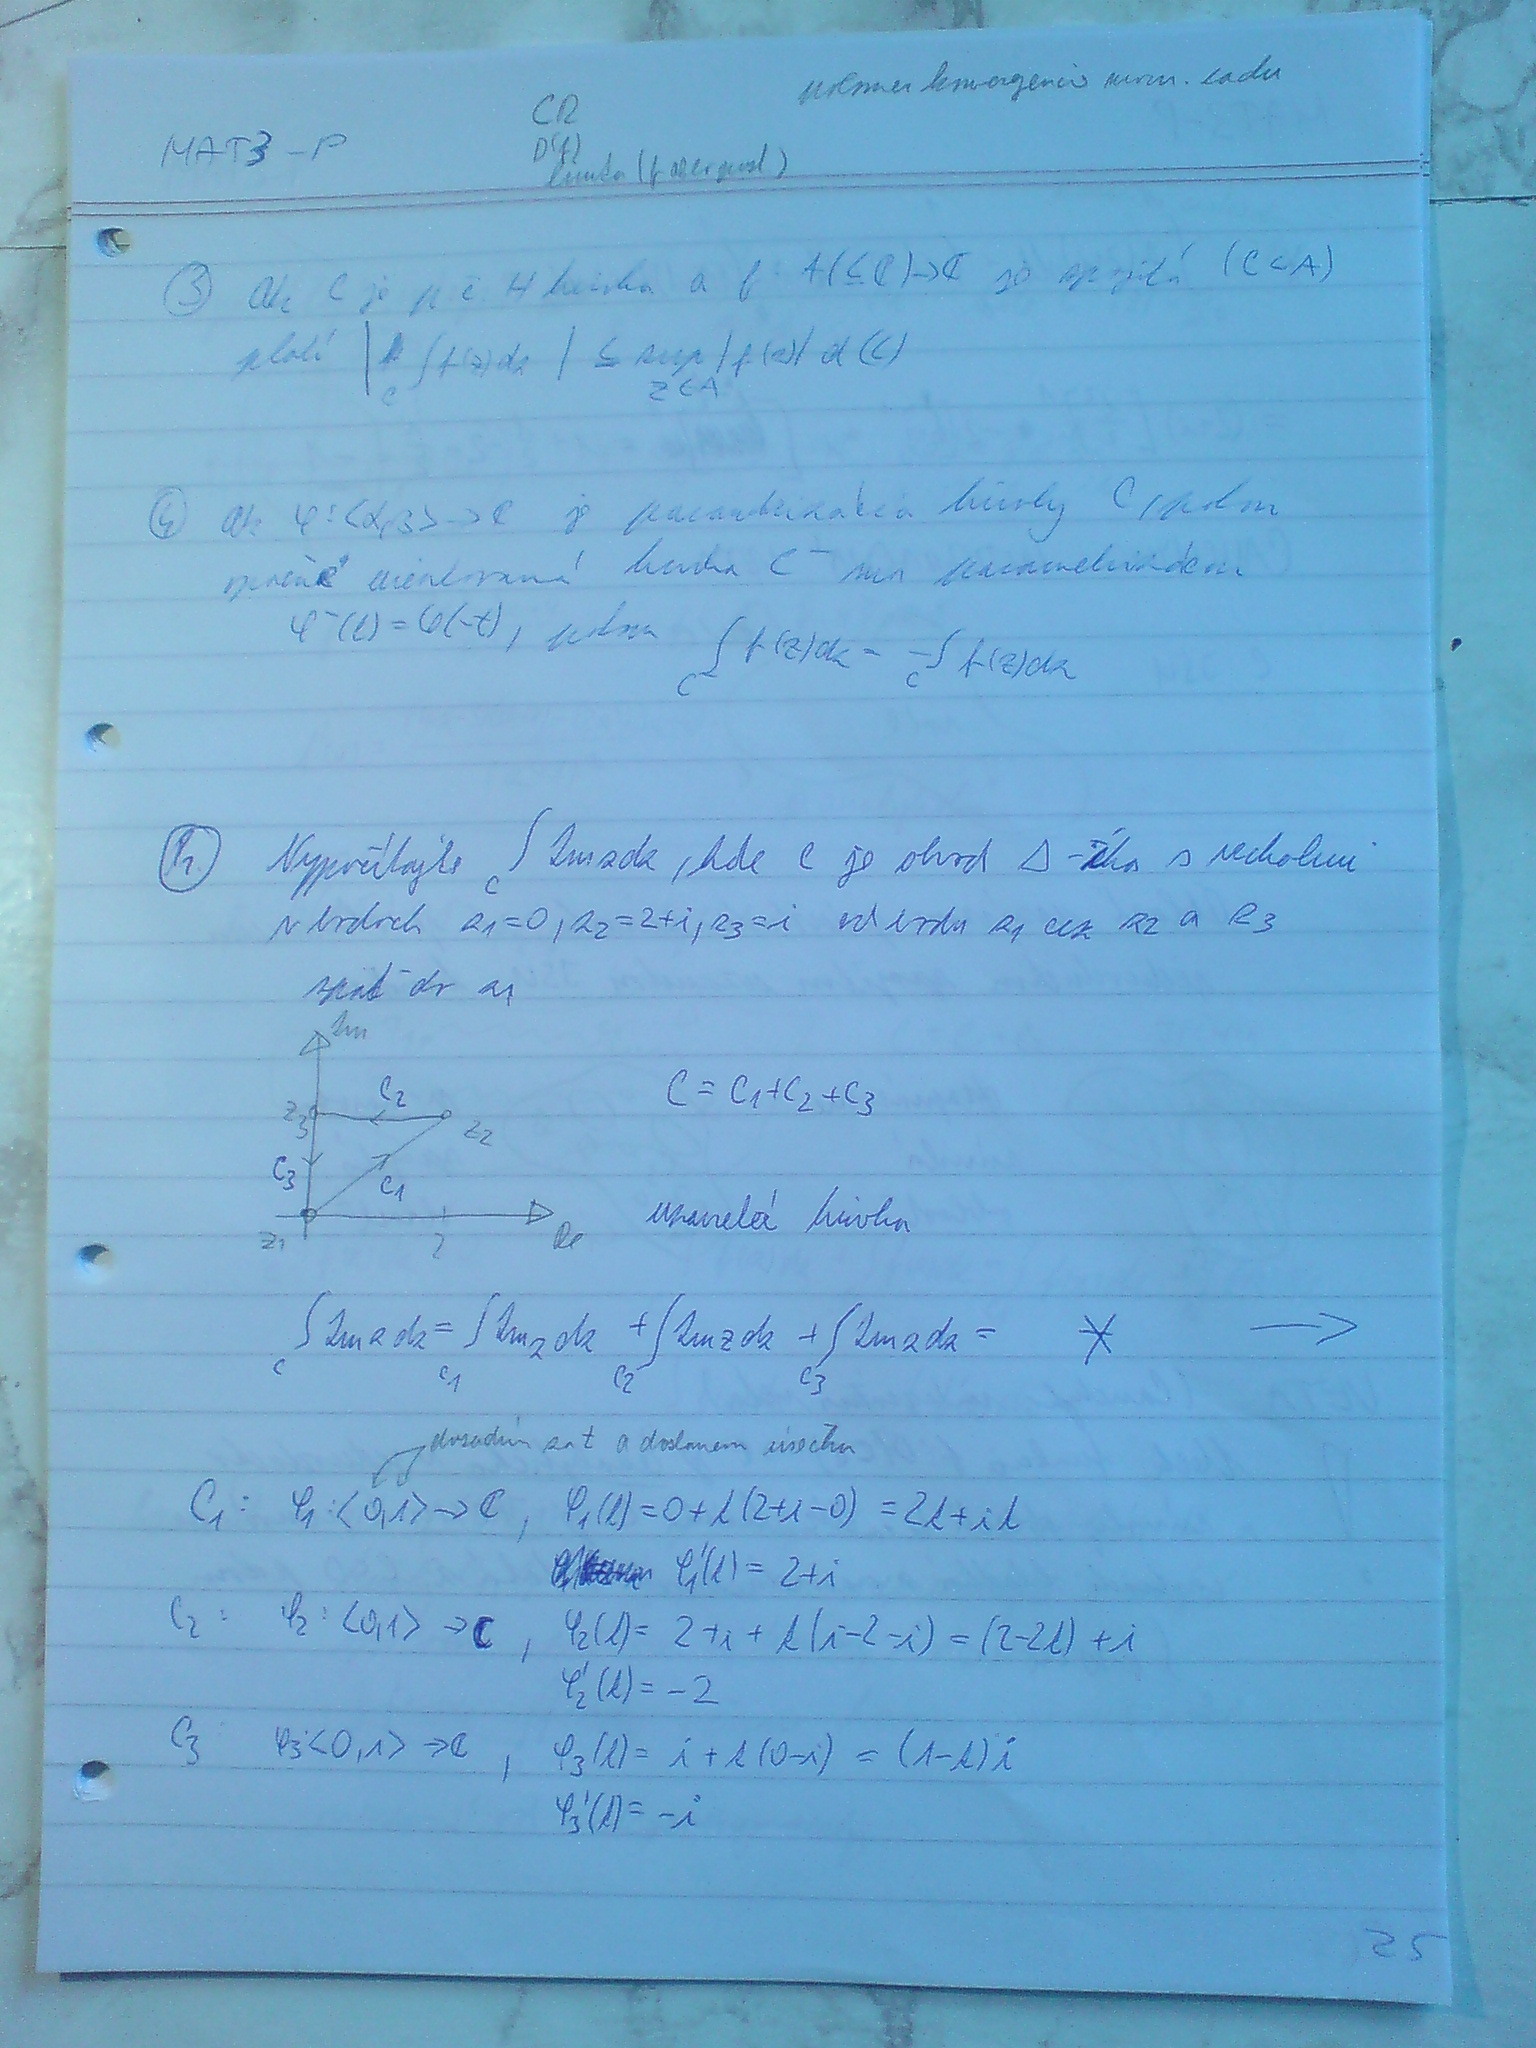 polomer konvergencie mocn. radu
CR
MAT3-P
D(f)
limita (f
③ Ak C je p č H krivka a f: A(⊆ℂ)→ℂ je spojitá (C⊂A)
platí |∫_C f(z)dz| ≤ sup_{z⊂A} |f(z)| d(C)
④ Ak φ:<α,β>→ℂ je parametrizácia krivky C, potom
opačne orientovaná krivka C⁻ má
φ⁻(t)=φ(-t), potom ∫_{C⁻} f(z)dz = -∫_C f(z)dz
Pr. Vypočítajte ∫_C Imzdz, kde C je obvod Δ-íka s vrcholmi
v bodoch z1=0, z2=2+i, z3=i od bodu z1 cez z2 a z3
späť do z1
Im
z3 C2 z2
C=C1+C2+C3
C3 C1
uzavretá krivka
z1 2 Re
∫_C Imzdz=∫_{C1} Imzdz +∫_{C2} Imzdz +∫_{C3} Imzdz = * →
dosadím za t a dostanem úsečku
C1: φ1:<0,1>→ℂ, φ1(t)=0+t(2+i-0)=2t+it
φ1'(t)=2+i
C2: φ2:<0,1>→ℂ, φ2(t)=2+i+t(i-2-i)=(2-2t)+i
φ2'(t)=-2
C3: φ3:<0,1>→ℂ, φ3(t)=i+t(0-i)=(1-t)i
φ3'(t)=-i
25